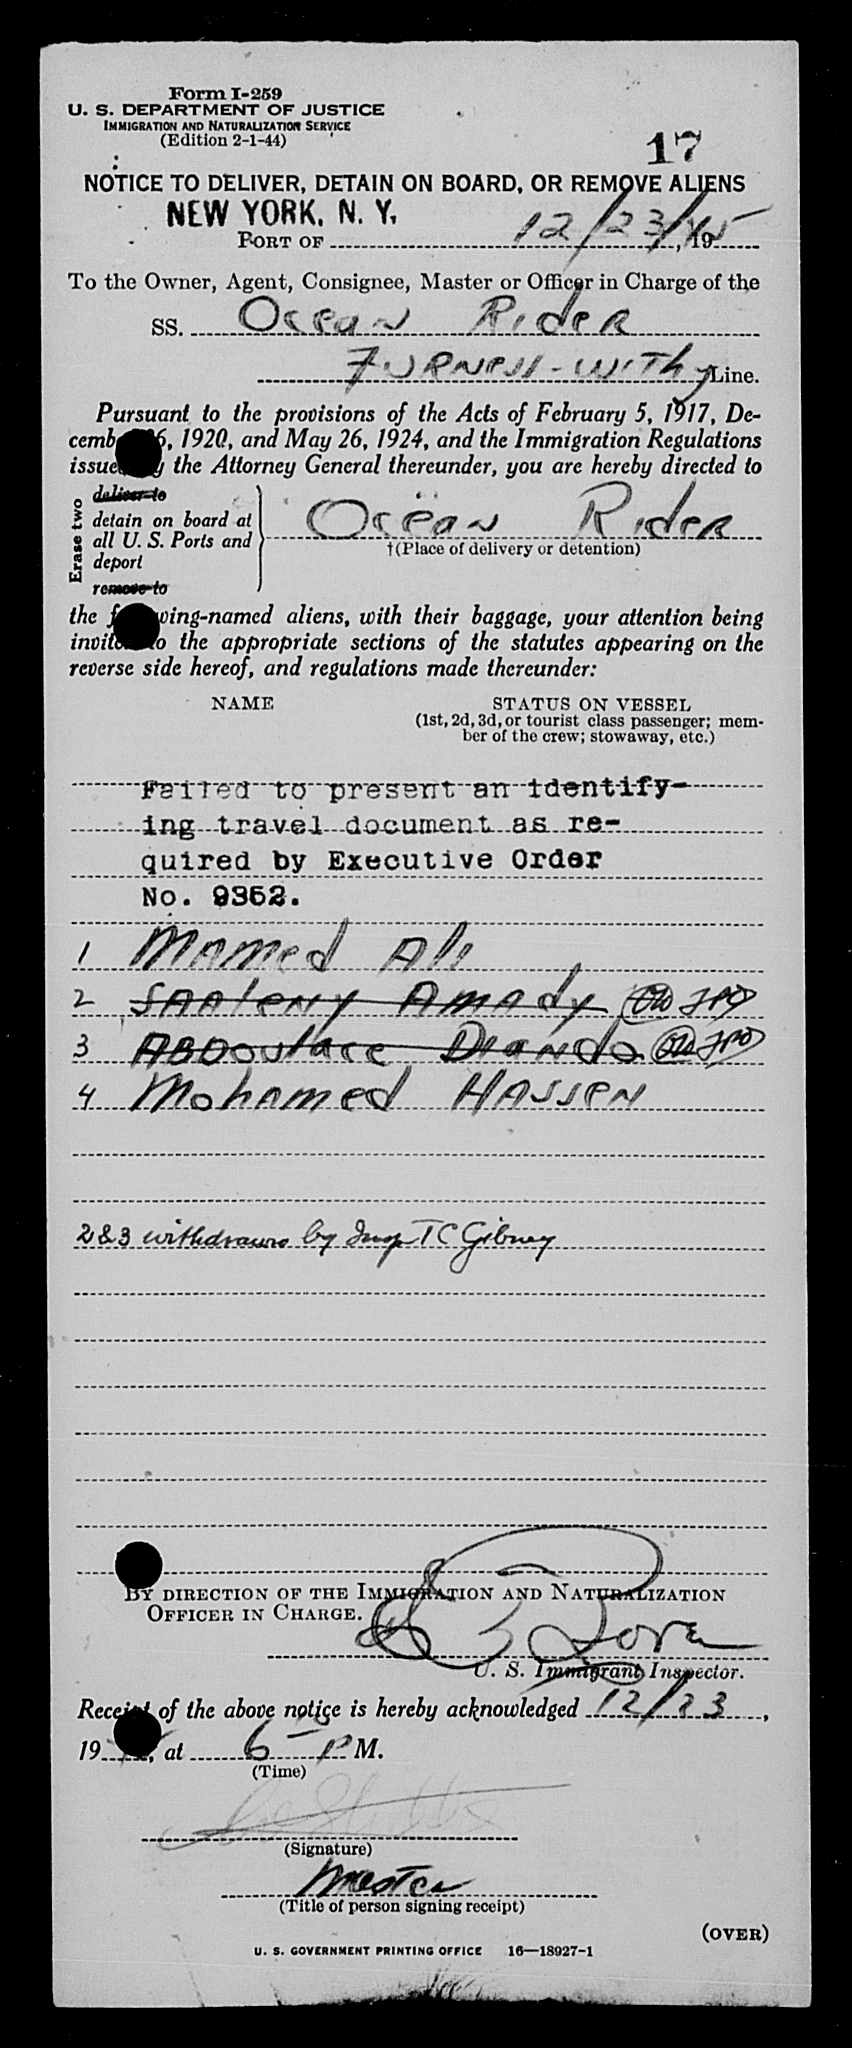 Form I-259
U. S. DEPARTMENT OF JUSTICE
IMMIGRATION AND NATURALIZATION SERVICE
(Edition 2-1-44)
17
NOTICE TO DELIVER, DETAIN ON BOARD, OR REMOVE ALIENS
NEW YORK, N. Y.
PORT OF 12/23/, 1945
To the Owner, Agent, Consignee, Master or Officer in Charge of the
SS. Ocean Rider
Furness-Withy Line.
Pursuant to the provisions of the Acts of February 5, 1917, De-
cemb 26, 1920, and May 26, 1924, and the Immigration Regulations
issued by the Attorney General thereunder, you are hereby directed to
Erase two
deliver to
detain on board at
all U. S. Ports and
deport
remove to
Ocean Rider
†(Place of delivery or detention)
the following-named aliens, with their baggage, your attention being
invited to the appropriate sections of the statutes appearing on the
reverse side hereof, and regulations made thereunder:
NAME STATUS ON VESSEL
(1st, 2d, 3d, or tourist class passenger; mem-
ber of the crew; stowaway, etc.)
Failed to present an identify-
ing travel document as re-
quired by Executive Order
No. 9352.
1 Mamed Ali
2 Saaleny Amady
3 Abdoulace Diando
4 Mohamed Hassen
2 & 3 withdrawn by Insp TC Gibney
BY DIRECTION OF THE IMMIGRATION AND NATURALIZATION
OFFICER IN CHARGE.
U. S. Immigrant Inspector.
Receipt of the above notice is hereby acknowledged 12/23,
19, at 6 P M.
(Time)
(Signature)
Master
(Title of person signing receipt)
(OVER)
U. S. GOVERNMENT PRINTING OFFICE 16—18927-1